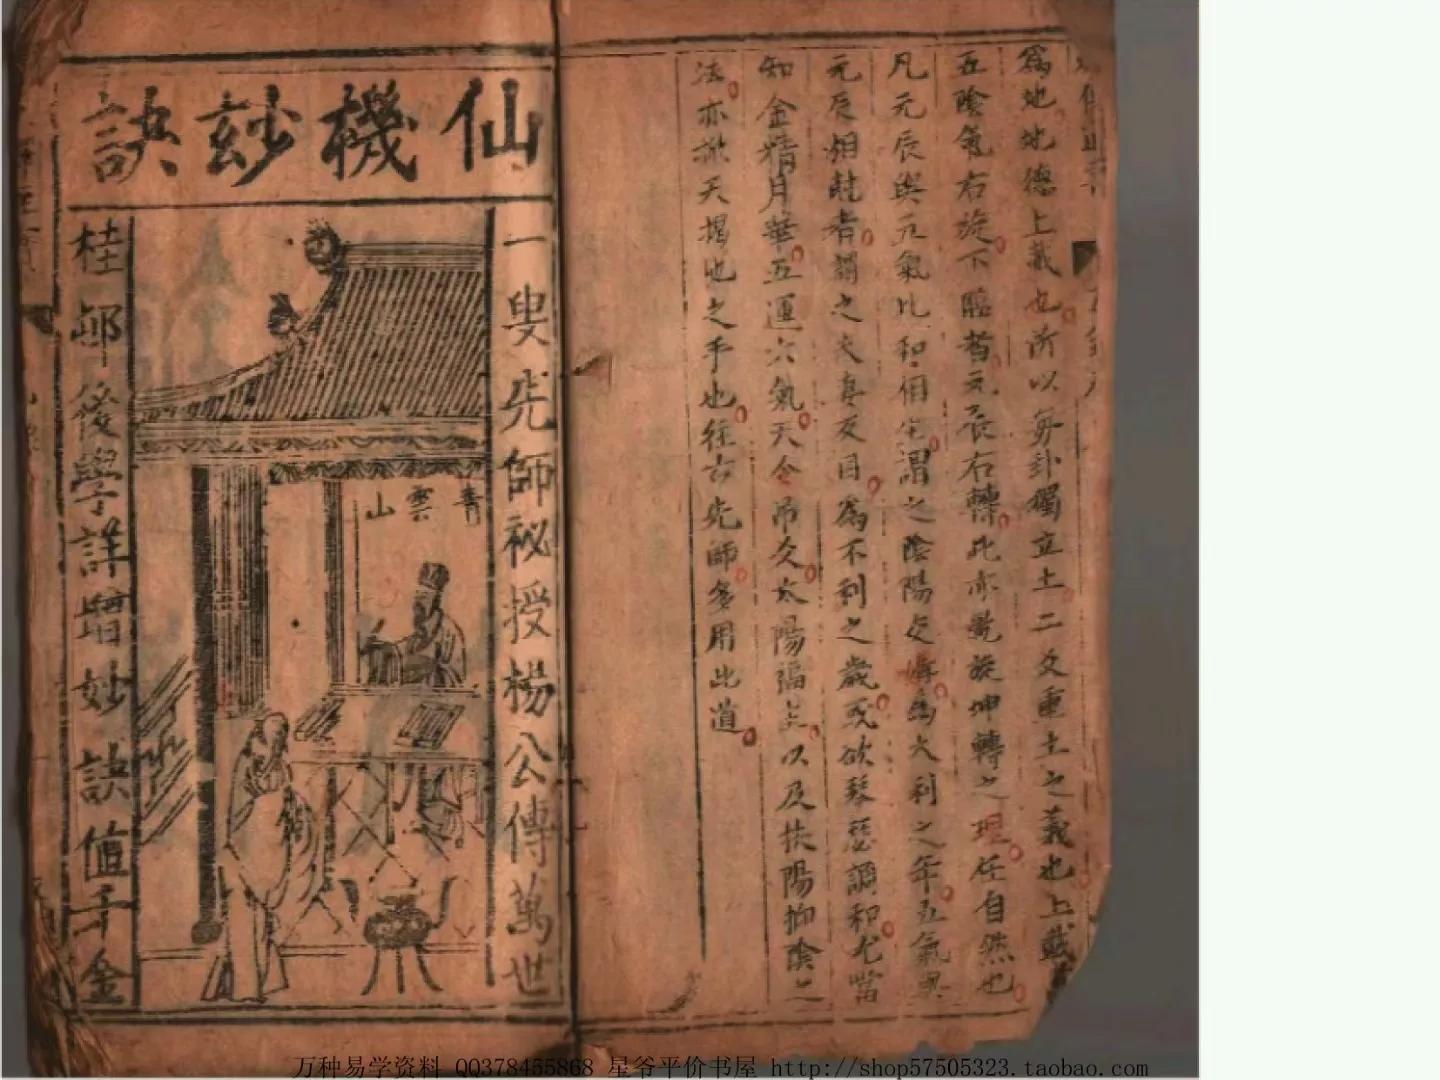 為地地德上載也所以艮卦獨立土二爻重土之義也上載
五陰氣右旋下臨者元辰右轉此亦乾旋坤轉之理任自然也
凡元辰與元氣比和相生謂之陰陽延壽為大利之年五氣與
元辰相尅者謂之夫妻反目為不利之歲或欲琴瑟調和尤當
知金精月華五運六氣天令吊久太陽福主以及扶陽抑陰之
法亦掀天揭地之手也往古先師多用此道
仙機玅訣
一叟先師祕授楊公傳萬世
青雲山
桂邨後學詳增妙訣値千金
万种易学资料 QQ378455868 星爷平价书屋 http://shop57505323.taobao.com